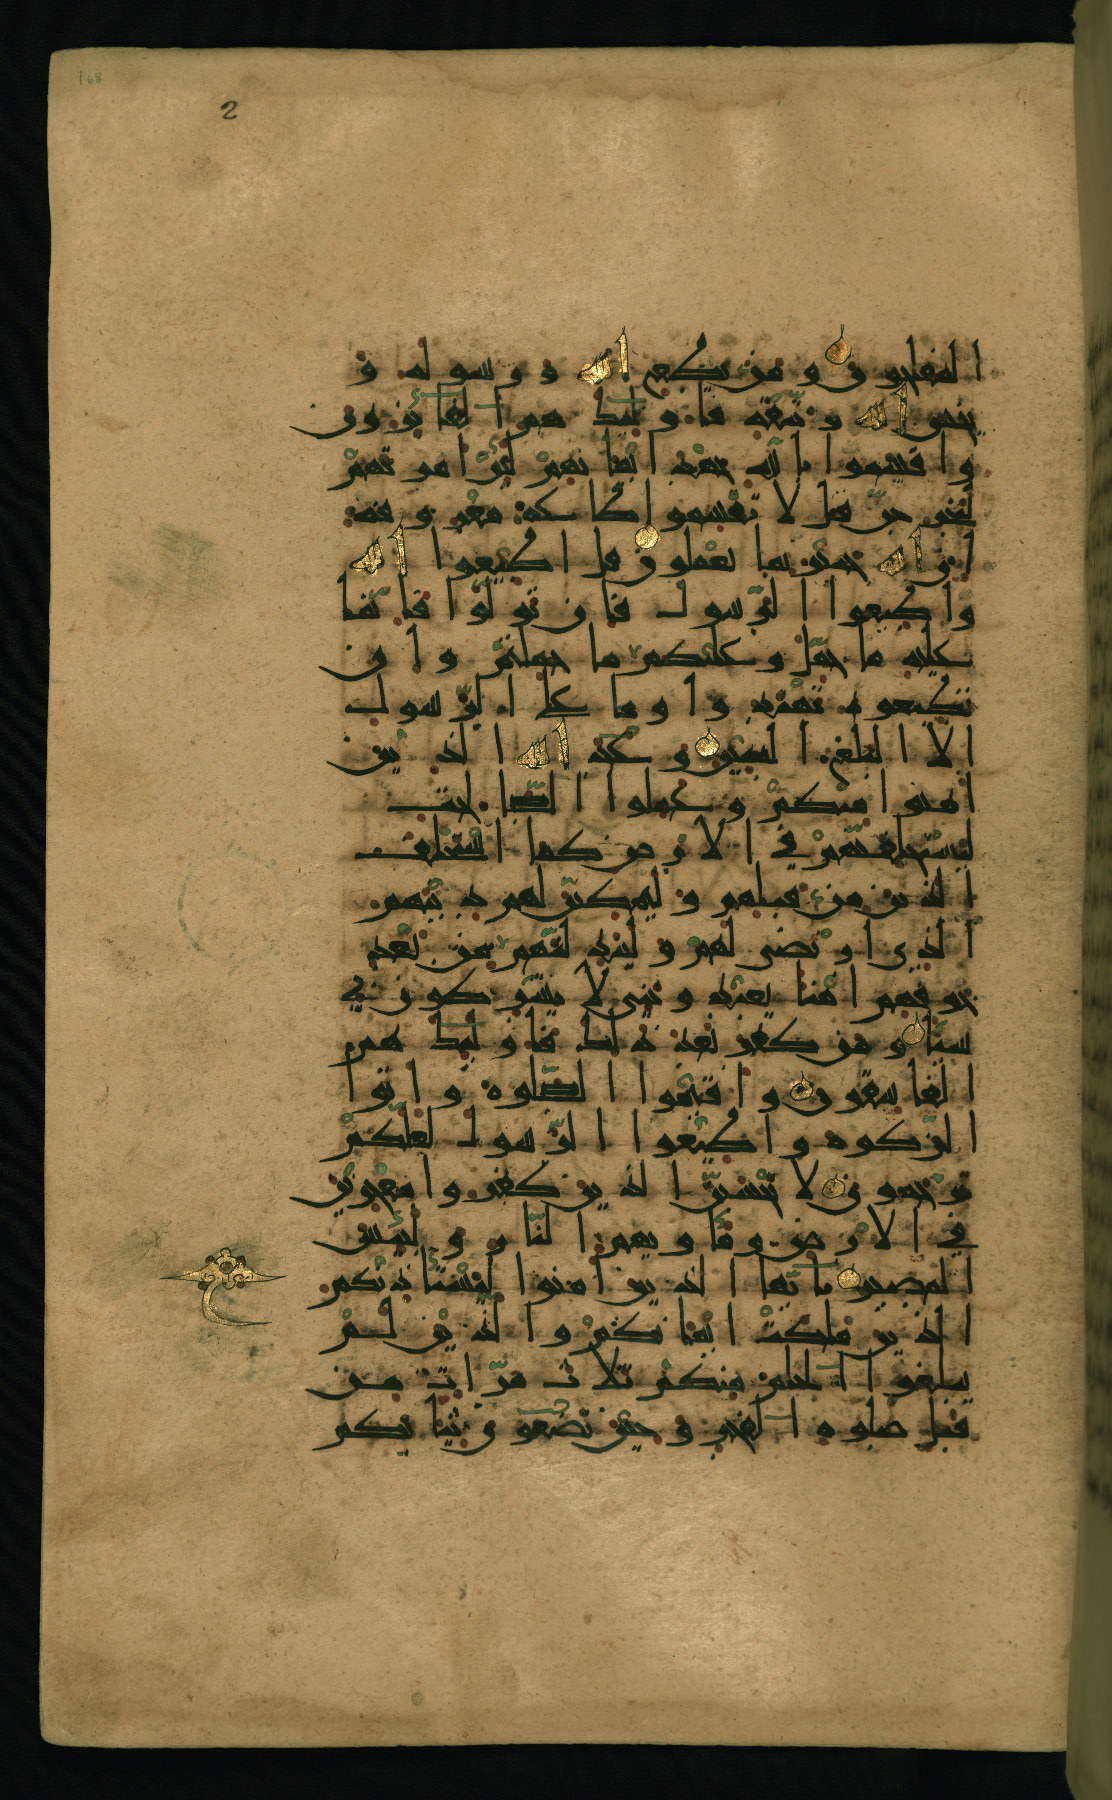 168
2
المفلحون ومن يطع الله ورسوله و
يخش الله ويتقه فاولئك هم الفائزون
واقسموا بالله جهد ايمانهم لئن امرتهم
ليخرجن قل لا تقسموا طاعة معروفة
ان الله خبير بما تعملون قل اطيعوا الله
واطيعوا الرسول فان تولوا فانما
عليه ما حمل وعليكم ما حملتم وان
تطيعوه تهتدوا وما على الرسول
الا البلغ المبين وعد الله الذين
امنوا منكم وعملوا الصلحت
ليستخلفنهم في الارض كما استخلف
الذين من قبلهم وليمكنن لهم دينهم
الذي ارتضى لهم وليبدلنهم من بعد
خوفهم امنا يعبدونني لا يشركون بي
شيئا ومن كفر بعد ذلك فاولئك هم
الفاسقون واقيموا الصلوة واتوا
الزكوة واطيعوا الرسول لعلكم
ترحمون لا تحسبن الذين كفروا معجزين
في الارض وماويهم النار ولبئس
المصير يايها الذين امنوا ليستاذنكم
الذين ملكت ايمانكم والذين لم
يبلغوا الحلم منكم ثلاث مرات من
قبل صلوة الفجر وحين تضعون ثيابكم